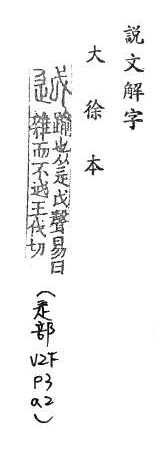 說文解字
大徐本
踰也从辵戉聲易曰
雜而不𨒋王伐切
(辵部
V2下
P3
a2)